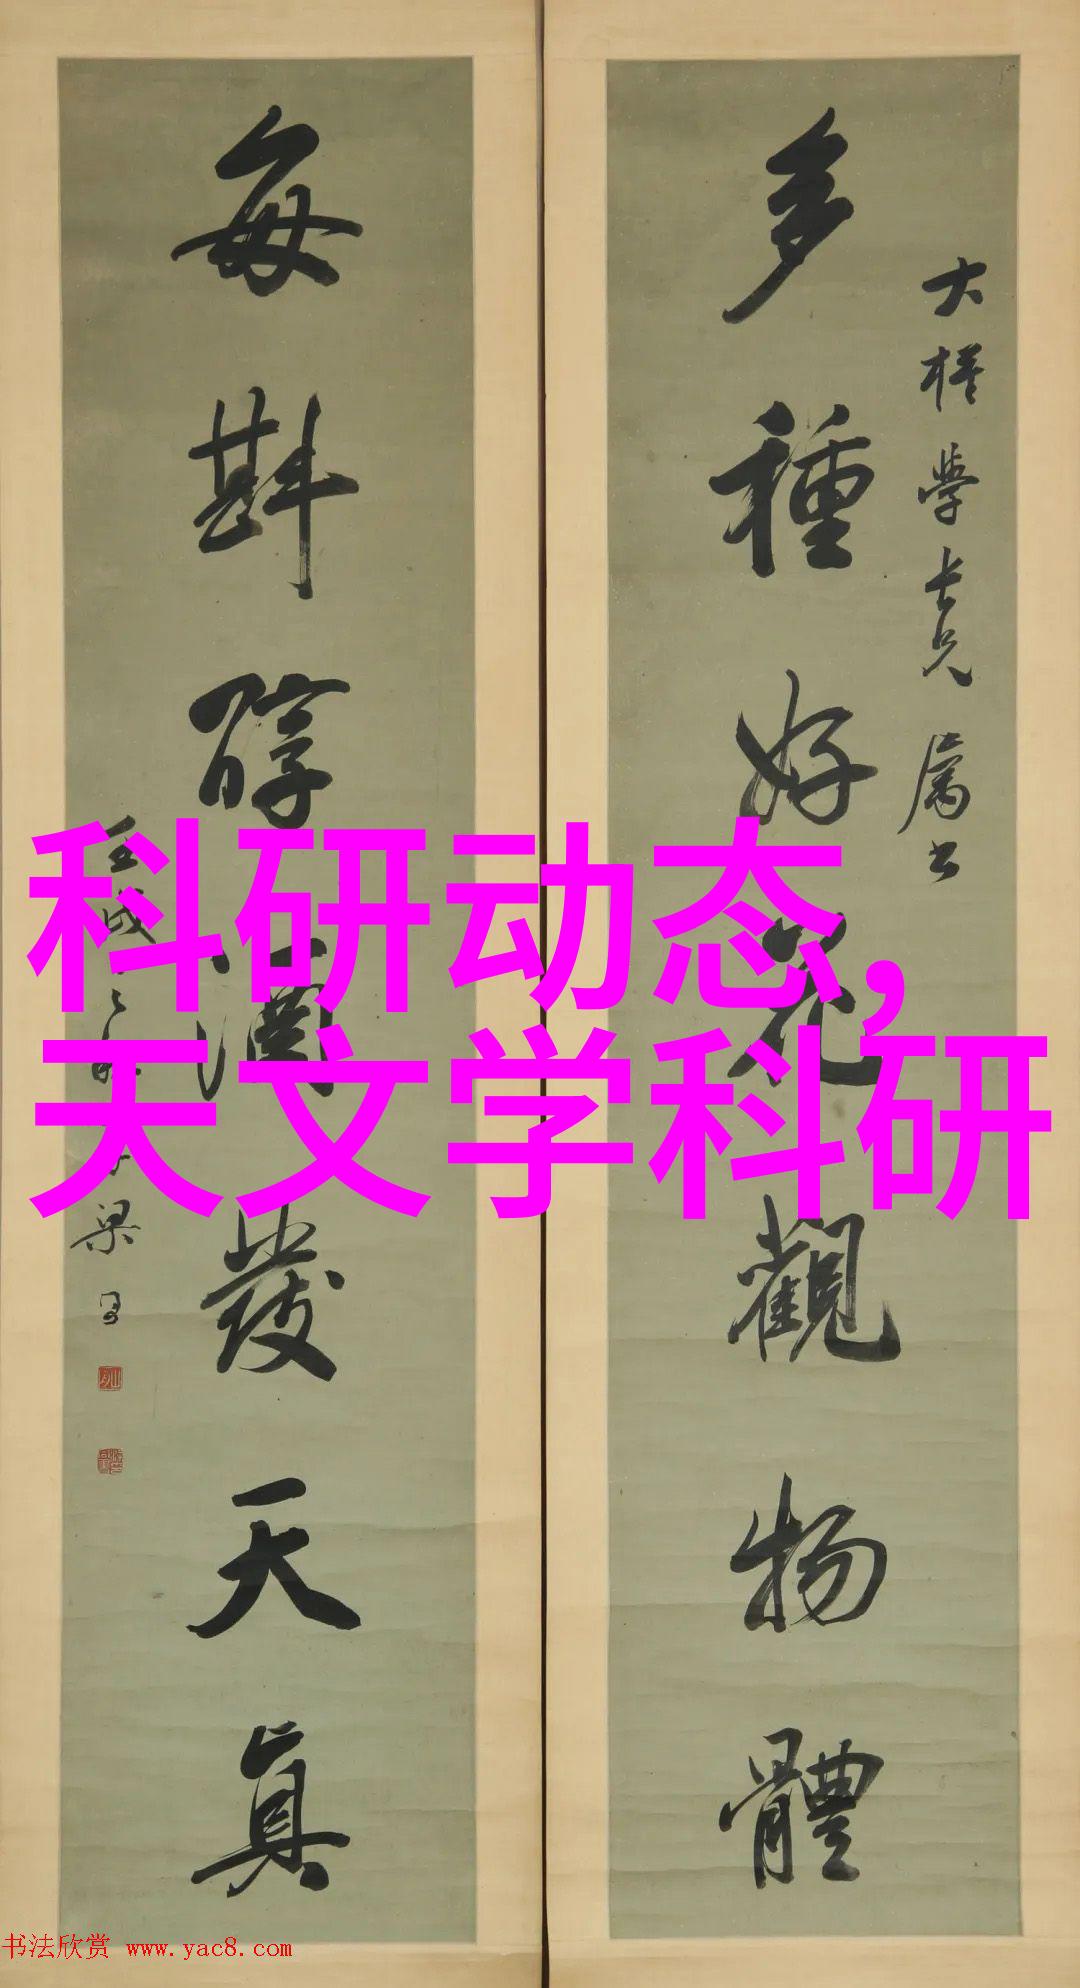 多種好花觀物體
大樑學長兄 屬書
每斟醇酒發天真
壬戌 梁
科研动态,
天文学科研
书法欣赏 www.yac8.com